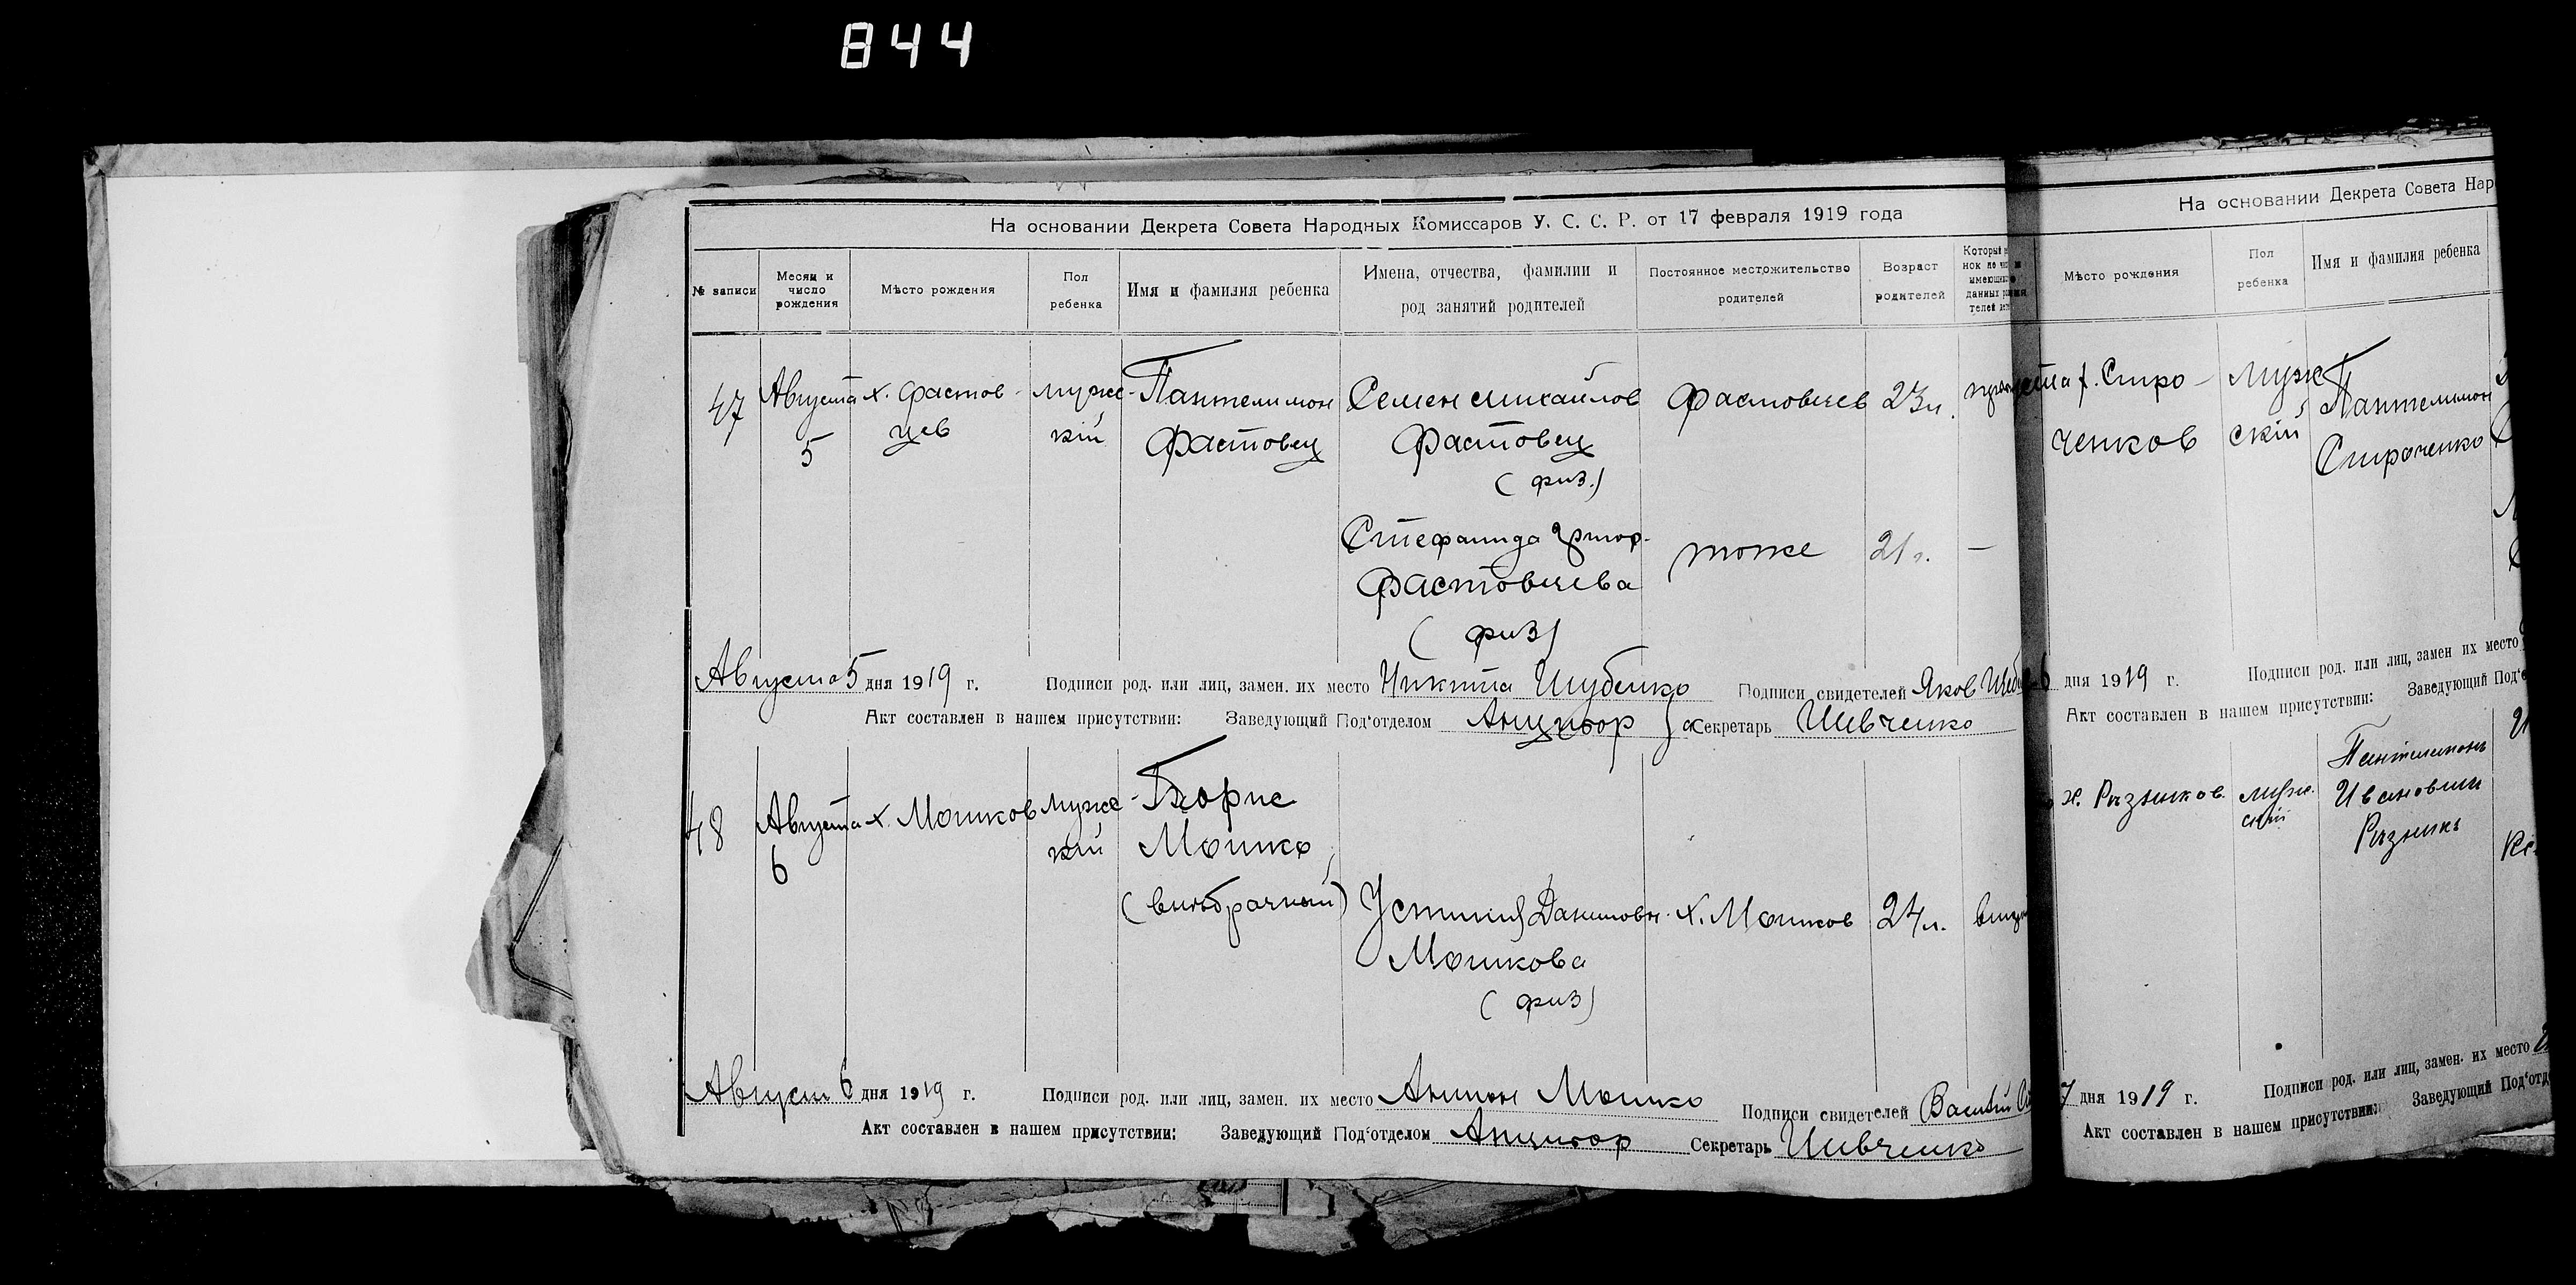 844
На основании Декрета Совета Народных Комиссаров У. С. С. Р. от 17 февраля 1919 года
№ записи
Месяц и число рождения
Мѣсто рождения
Пол ребенка
Имя и фамилия ребенка
Имена, отчества, фамилии и род занятий родителей
Постоянное местожительство родителей
Возраст родителей
47
Августа 5
х. Фастов-
цев
мужс-
кій
Пантелимон
Фастовец
Семен Михайлов
Фастовец
(физ.)
Фастовцев
23 л.
Стефанида Григор.
Фастовцева
(физ)
тоже
21 г.
—
Августа 5 дня 1919 г. Подписи род. или лиц, замен. их место Никита Шубенко Подписи свидетелей Яков
Акт составлен в нашем присутствии: Заведующий Под'отделом Секретарь Шевченко
48
Августа 6
х. Мошков
мужс-
кій
Борис
Мошко
(внѣбрачный)
Устинія Данилов.
Мошкова
(физ)
х. Мошков
24 л.
Август 6 дня 1919 г. Подписи род. или лиц, замен. их место Антон Мошко Подписи свидетелей Василій
Акт составлен в нашем присутствии: Заведующий Под'отделом Секретарь Шевченко
На основании Декрета Совета Нар
Мѣсто рождения
Пол ребенка
Имя и фамилия ребенка
х. Спиро-
ченков
мужс
скій
Пантелимон
Спироченко
6 дня 1919 г. Подписи род. или лиц, замен их место
Акт составлен в нашем присутствии: Заведующий Под'
х. Рязников.
муж.
скій
Пантелимонъ
Ивановичъ
Рязникъ
7 дня 1919 г. Подписи род. или лиц, замен. их место
Акт составлен в нашем присутствии: Заведующий Под'отд